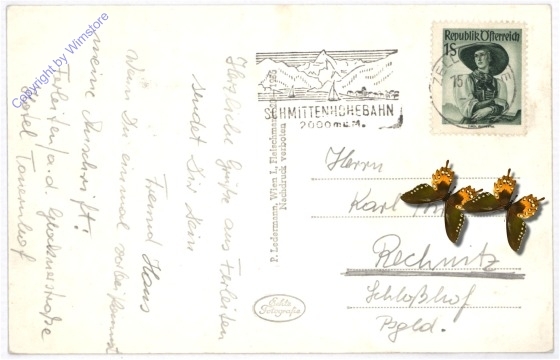 Copyright by Wimstore
Herzliche Grüße aus Ferleiten
sendet Dir Dein
Freund Hans
Wenn Du einmal vorbeikommst
meine Anschrift:
Ferleiten/a.d. Glocknerstraße
Hotel Tauernhof
P. Ledermann, Wien I., Fleischmarkt
Nachdruck verboten
Echte
Fotografie
SCHMITTENHÖHEBAHN
2000 m ü. M.
Republik Österreich
1S
ZELL
15
Herrn
Karl
Rechnitz
Schloßhof
Bgld.